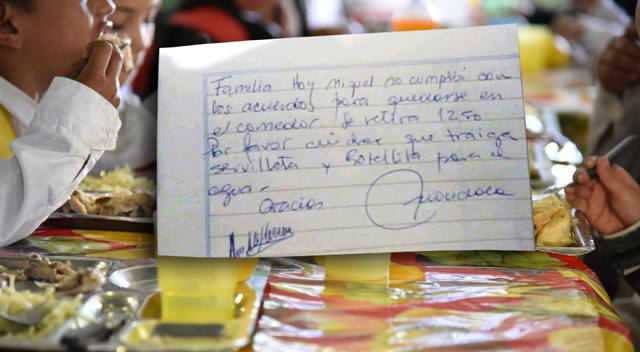 Familia Hoy Miguel no cumplió con
los acuerdos para quedarse en
el comedor. Se retira 1250
Por favor cuidar que traiga
servilleta y botellita para el
agua.
Gracias